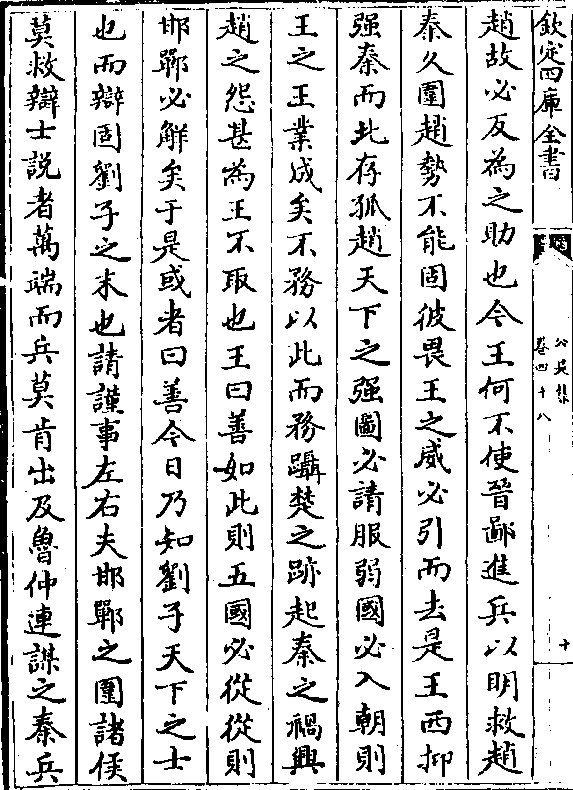 欽定四庫全書
公是集
卷四十八
十
趙故必反為之助也今王何不使晉鄙進兵以明救趙
秦久圍趙勢不能固彼畏王之威必引而去是王西抑
强秦而北存孤趙天下之强國必請服弱國必入朝則
王之王業成矣不務以此而務躡楚之跡起秦之禍興
趙之怨甚為王不取也王曰善如此則五國必從從則
邯鄲必解矣于是或者曰善今日乃知劉子天下之士
也而辯固劉子之末也請謹事左右夫邯鄲之圍諸侯
莫救辯士説者萬端而兵莫肯出及魯仲連謀之秦兵